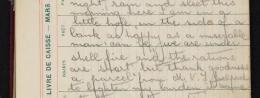 LIVRE DE CAISSE - MARS
night, rain and sleet this
morning here I am in a
little hole in the side of a
bank as happy as a miserable
man can be, we are under
shell fire and the rations
are poor but the goodness
a parcel from the V.F. helped
to lighten my burden